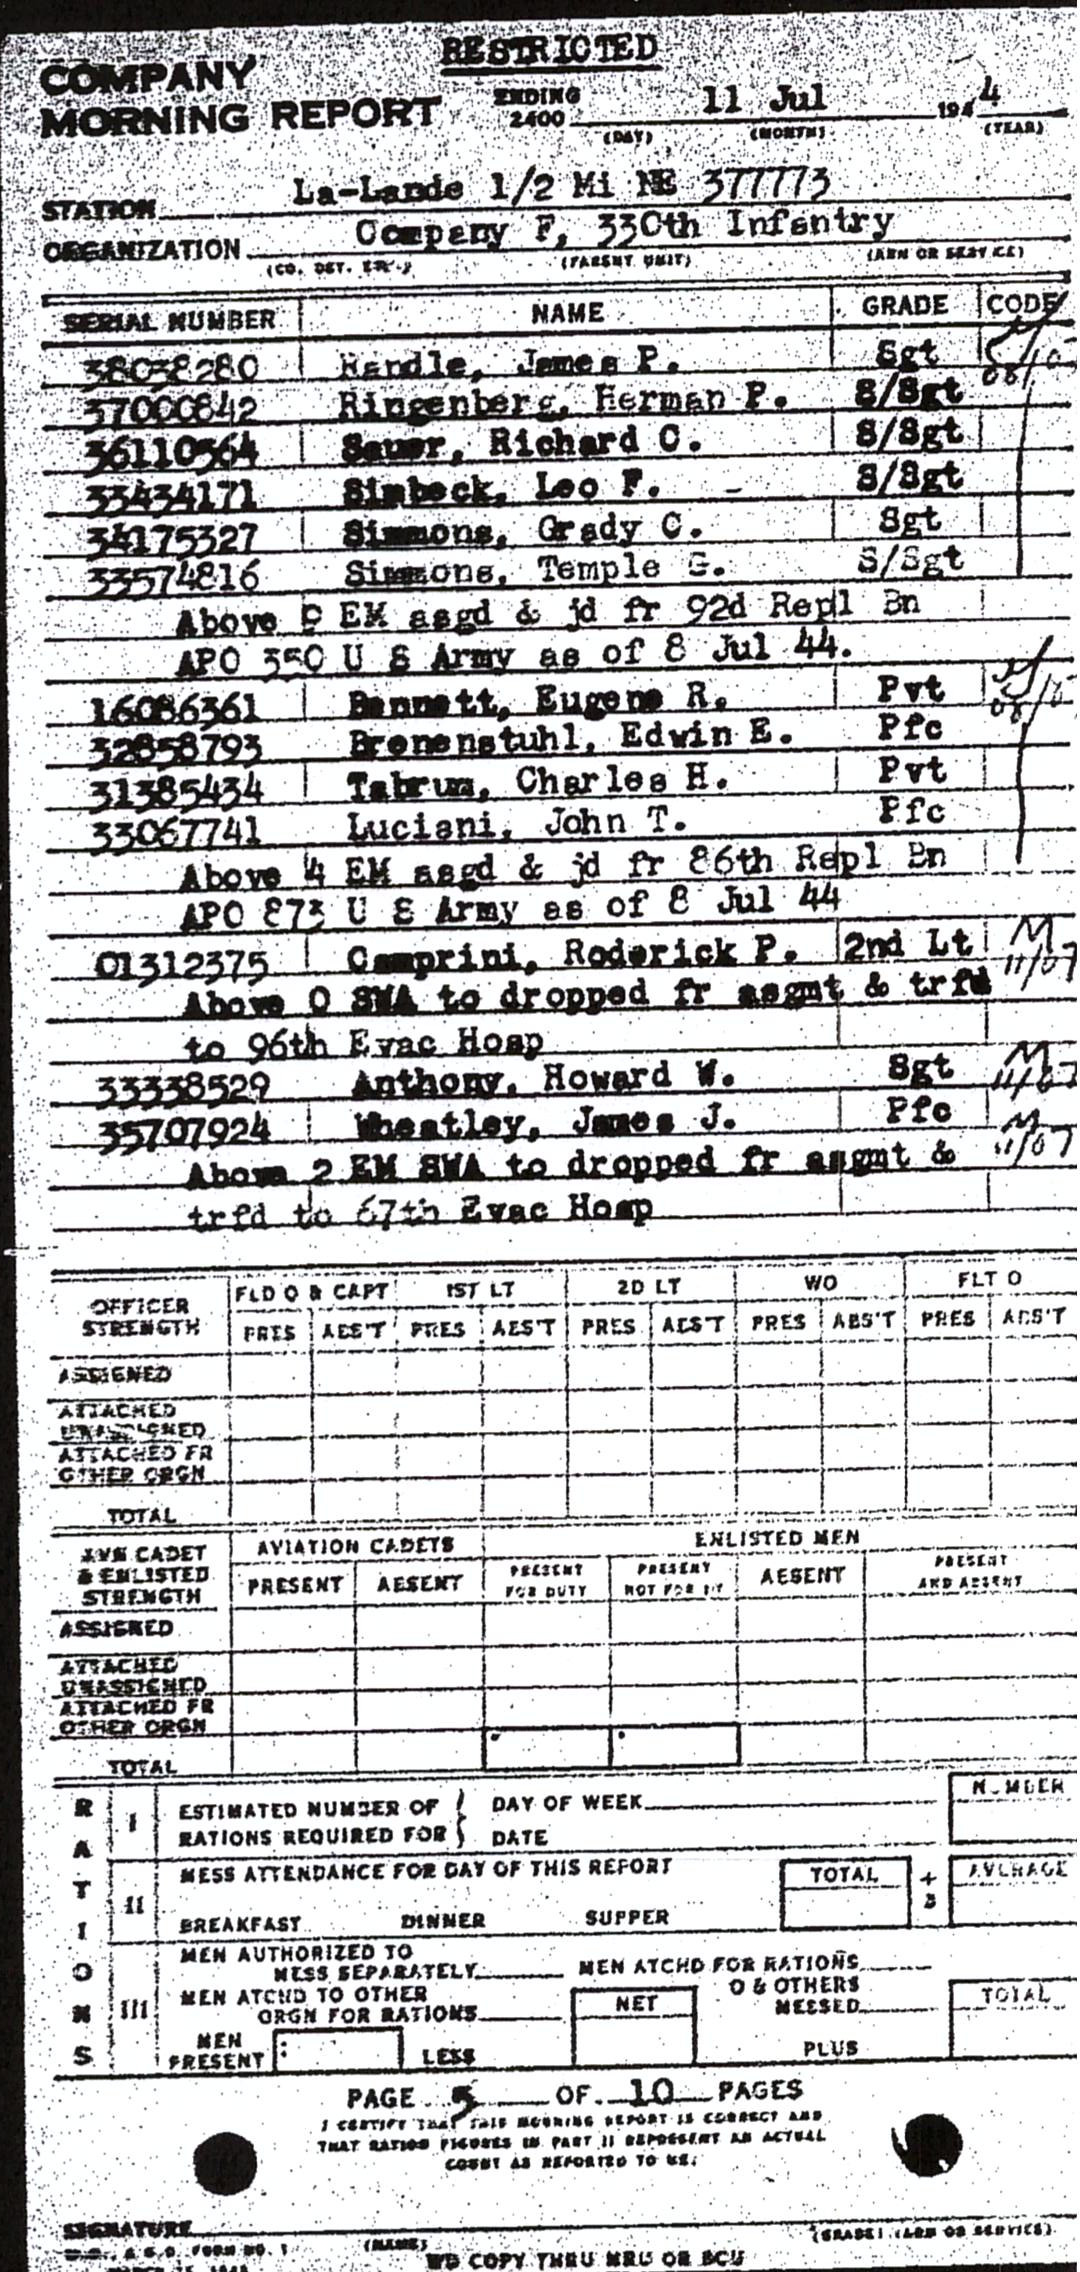 RESTRICTED
COMPANY
MORNING REPORT
ENDING
2400
11 Jul
1944
(DAY) (MONTH) (YEAR)
STATION La-Lande 1/2 Mi NE 377773
ORGANIZATION Company F, 330th Infantry
(CO. DET. ETC.) (PARENT UNIT) (ARM OR SERVICE)
SERIAL NUMBER NAME GRADE CODE
38038280 James P. Sgt
37000842 Ringenberg, Herman P. S/Sgt
36110564 Sauer, Richard C. S/Sgt
33434171 Simbeck, Leo F. - S/Sgt
34175327 Simmons, Grady C. Sgt
33574816 Simmons, Temple G. S/Sgt
Above 9 EM asgd & jd fr 92d Repl Bn
APO 350 U S Army as of 8 Jul 44.
16086361 Bennett, Eugene R. Pvt
32858793 Bronenstuhl, Edwin E. Pfc
31385434 Tabrum, Charles H. Pvt
33067741 Luciani, John T. Pfc
Above 4 EM asgd & jd fr 86th Repl Bn
APO 873 U S Army as of 8 Jul 44
01312375 Camprini, Roderick P. 2nd Lt M 11/07
Above O SWA to dropped fr asgmt & trfd
to 96th Evac Hosp
33338529 Anthony, Howard W. Sgt M 11/07
35707924 Wheatley, James J. Pfc M 11/07
Above 2 EM SWA to dropped fr asgmt &
trfd to 67th Evac Hosp
OFFICER STRENGTH FLD O & CAPT 1ST LT 2D LT WO FLT O
PRES ABS'T PRES ABS'T PRES ABS'T PRES ABS'T PRES ABS'T
ASSIGNED
ATTACHED
UNASSIGNED
ATTACHED FR
OTHER ORGN
TOTAL
AVN CADET & ENLISTED STRENGTH AVIATION CADETS ENLISTED MEN
PRESENT ABSENT PRESENT FOR DUTY PRESENT NOT FOR DY ABSENT PRESENT AND ABSENT
ASSIGNED
ATTACHED
UNASSIGNED
ATTACHED FR
OTHER ORGN
TOTAL
RATIONS
I ESTIMATED NUMBER OF DAY OF WEEK NUMBER
RATIONS REQUIRED FOR DATE
II MESS ATTENDANCE FOR DAY OF THIS REPORT TOTAL ÷ 3 AVERAGE
BREAKFAST DINNER SUPPER
III MEN AUTHORIZED TO
MESS SEPARATELY MEN ATCHD FOR RATIONS
MEN ATCHD TO OTHER
ORGN FOR RATIONS NET O & OTHERS
MESSED TOTAL
MEN
PRESENT LESS PLUS
PAGE 5 OF 10 PAGES
I CERTIFY THAT THIS MORNING REPORT IS CORRECT AND
THAT RATION FIGURES IN PART II REPRESENT AN ACTUAL
COUNT AS REPORTED TO ME.
SIGNATURE
(NAME) (GRADE) (ARM OR SERVICE)
W.D., A.G.O. FORM NO. 1
WD COPY THRU MRU OR SCU